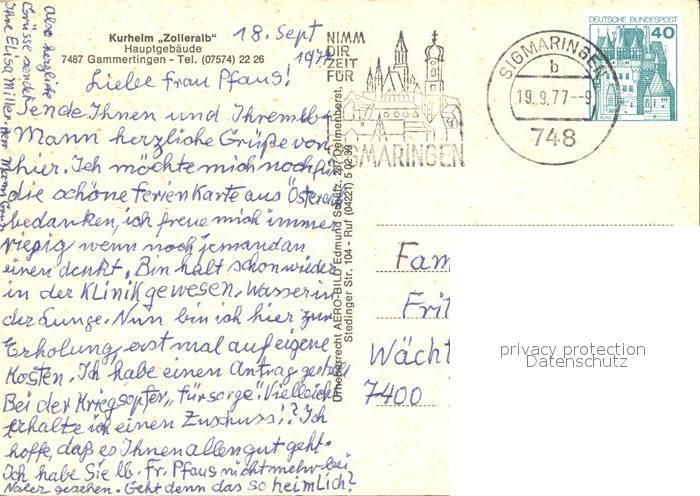 Kurheim „Zolleralb"
Hauptgebäude
7487 Gammertingen - Tel. (07574) 22 26
18. Sept
1977
Liebe Frau Pfaus!
sende Ihnen und Ihrem lb.
Mann herzliche Grüße von
hier. Ich möchte mich noch für
die schöne Ferienkarte aus Österreich
bedanken, ich freue mich immer
riesig wenn noch jemand an
einen denkt. Bin halt schon wieder
in der Klinik gewesen. Wasser in
der Lunge. Nun bin ich hier zur
Erholung, erst mal auf eigene
Kosten. Ich habe einen Antrag gestellt
Bei der Kriegsopfer „fürsorge". Vielleicht
erhalte ich einen Zuschuss!? Ich
hoffe, daß es Ihnen allen gut geht.
Ich habe Sie lb. Fr. Pfaus nicht mehr bei
gesehen. Geht denn das so heimlich?
Also herzliche
Grüsse sendet
Ihre Elisa
Urheberrecht AERO-BILD Edmund 287 Delmenhorst,
Stedinger Str. 104 - Ruf (04221) 5 02 39
NIMM
DIR
ZEIT
FÜR
SIGMARINGEN
SIGMARINGEN
b
19.9.77--9
748
DEUTSCHE BUNDESPOST
40
Fam
Frit
Wächt
7400
privacy protection
Datenschutz